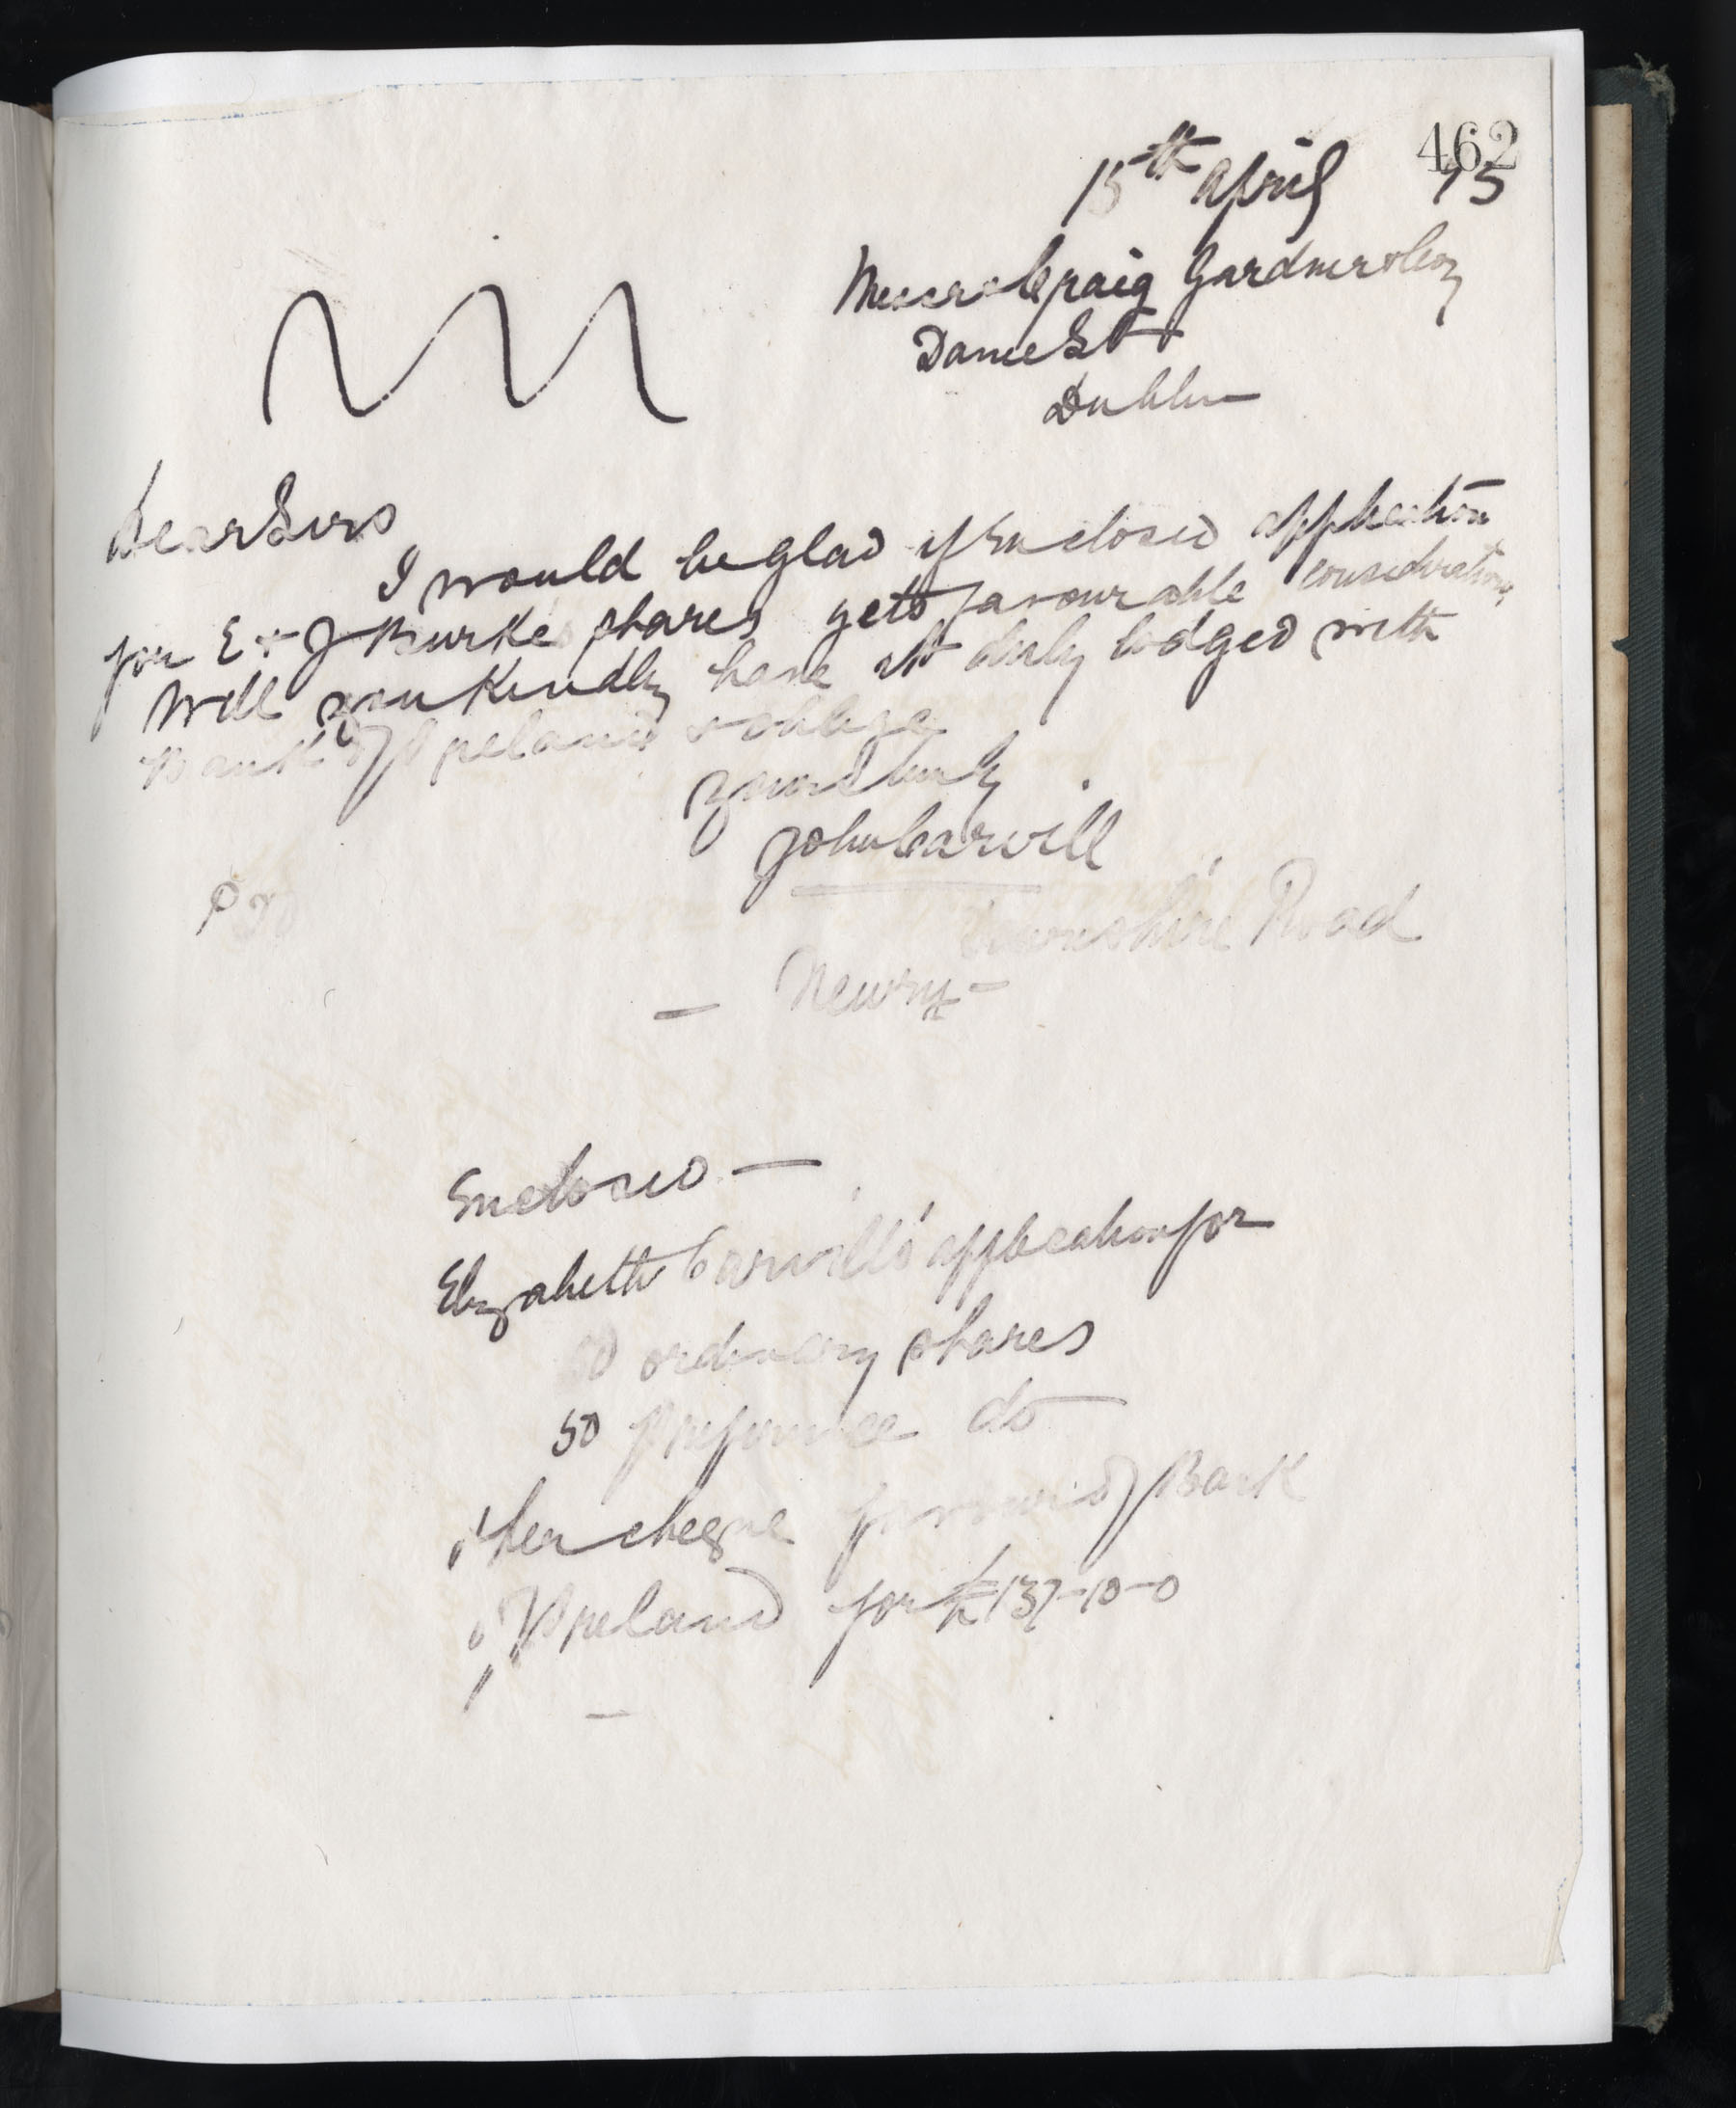 462
15th April 95
Messrs Craig Gardner & Coy
Dame St
Dublin
Dear Sirs
I would be glad if Enclosed application
for E & J Burkes shares gets favourable consideration,
Will you kindly have it duly lodged with
Bank of Ireland & oblige
yours truly
John Carvill
Devonshire Road
- Newry -
Enclosed —
Elizabeth Carvill's application for
50 ordinary shares
50 Preference do
" her cheque favour of Bank
" of Ireland for £137-10-0